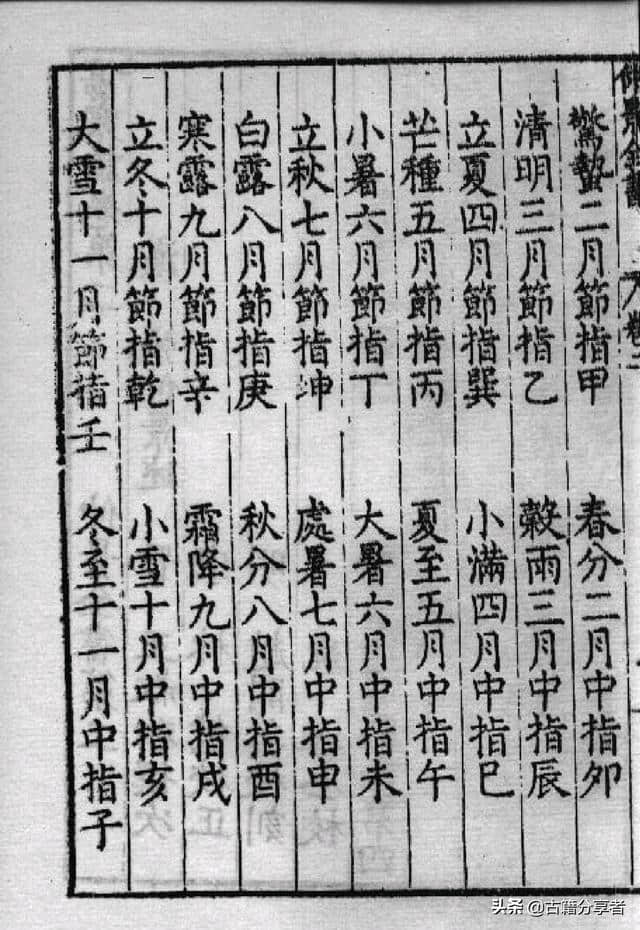 驚蟄二月節指甲　春分二月中指卯
清明三月節指乙　穀雨三月中指辰
立夏四月節指巽　小滿四月中指巳
芒種五月節指丙　夏至五月中指午
小暑六月節指丁　大暑六月中指未
立秋七月節指坤　處暑七月中指申
白露八月節指庚　秋分八月中指酉
寒露九月節指辛　霜降九月中指戌
立冬十月節指乾　小雪十月中指亥
大雪十一月節指壬　冬至十一月中指子
头条 @古籍分享者